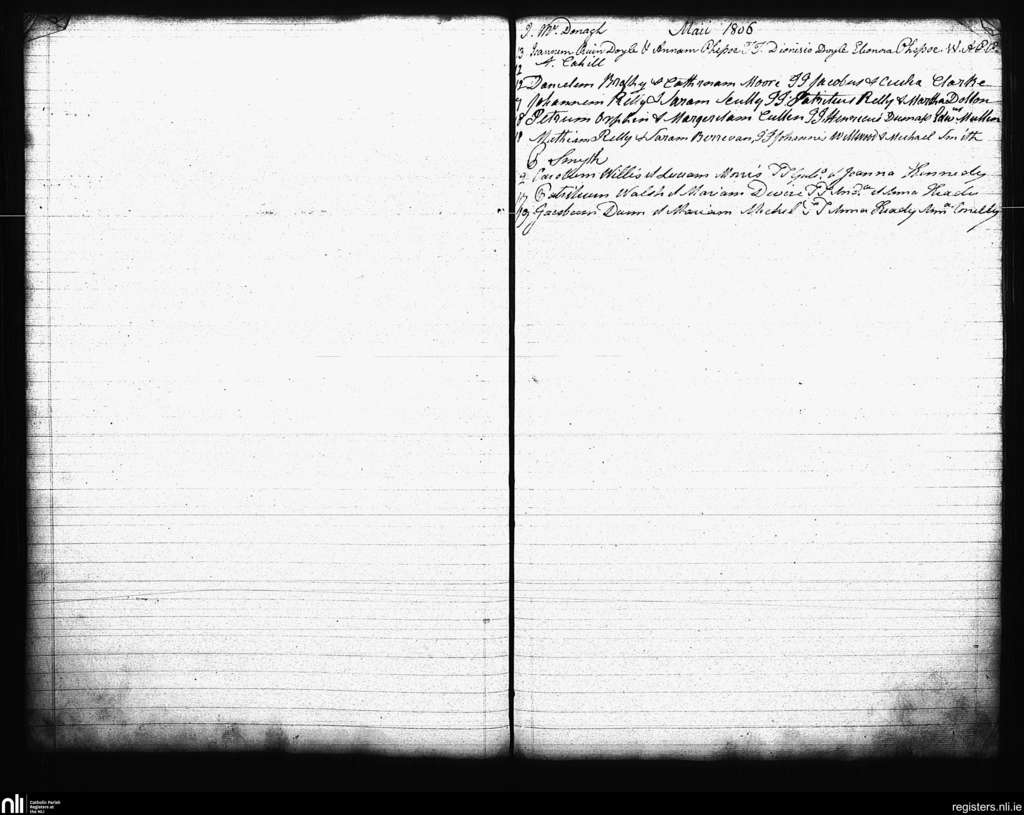 J. Mc Donagh Maii 1806
13 Joannem Doyle & Annam Chepse TT Dionisio Doyle Elenora Chepse
A. Cahill
12 Danielem Brophy & Catherinam Moore TT Jacobus & Cecilia Clarke
Johannem Kelly & Saram Scully TT Patritius Kelly & Martha Dolton
18 Petrum Orphin & Margeretam Cullin TT Henericus Dumas Edwd Mullen
19 Mathiam Kelly & Saram Berrevan TT Johannis & Michael Smith
Smyth
Carollem Willis et Luciam Morris TT et Joanna Kennedy
17 Patritium Walsh et Mariam TT et Anna Keady
19 Jacobum Dunn et Mariam Michel TT Anna Keady
nli
Catholic Parish
Registers at
the NLI
registers.nli.ie